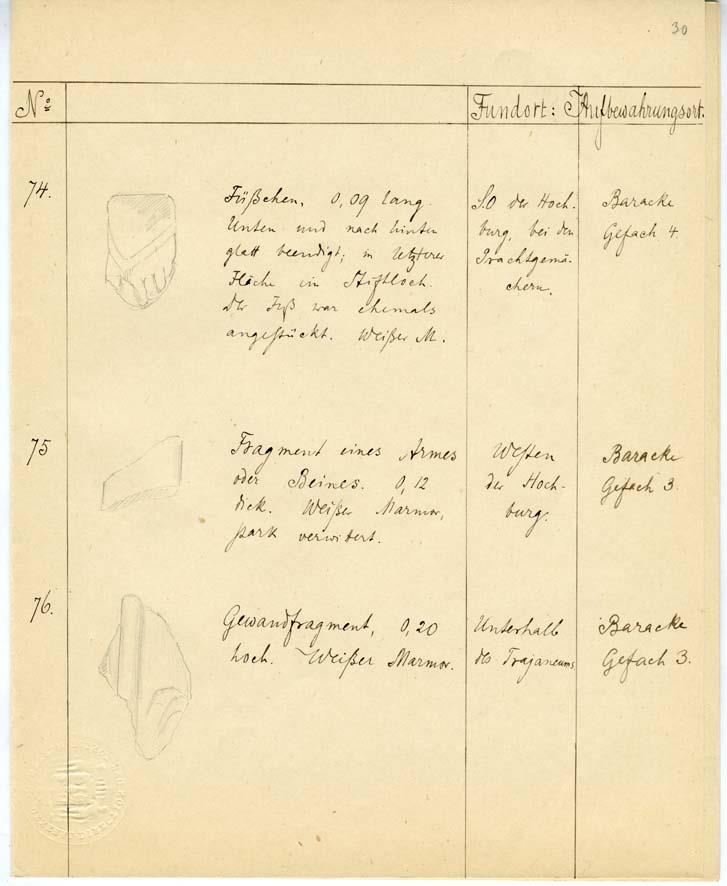 30
No Fundort: Aufbewahrungsort.
74.
Füßchen, 0,09 lang.
Unten und nach hinten
glatt beendigt; in letzterer
Fläche ein Stiftloch.
Der Fuß war ehemals
angestückt. Weißer M.
SO der Hoch-
burg, bei den
Prachtgemä-
chern.
Baracke
Gefach 4.
75
Fragment eines Armes
oder Beines. 0,12
dick. Weißer Marmor,
stark verwitert.
Westen
der Hoch-
burg.
Baracke
Gefach 3.
76.
Gewandfragment, 0,20
hoch. Weißer Marmor.
Unterhalb
des Trajaneums
Baracke
Gefach 3.